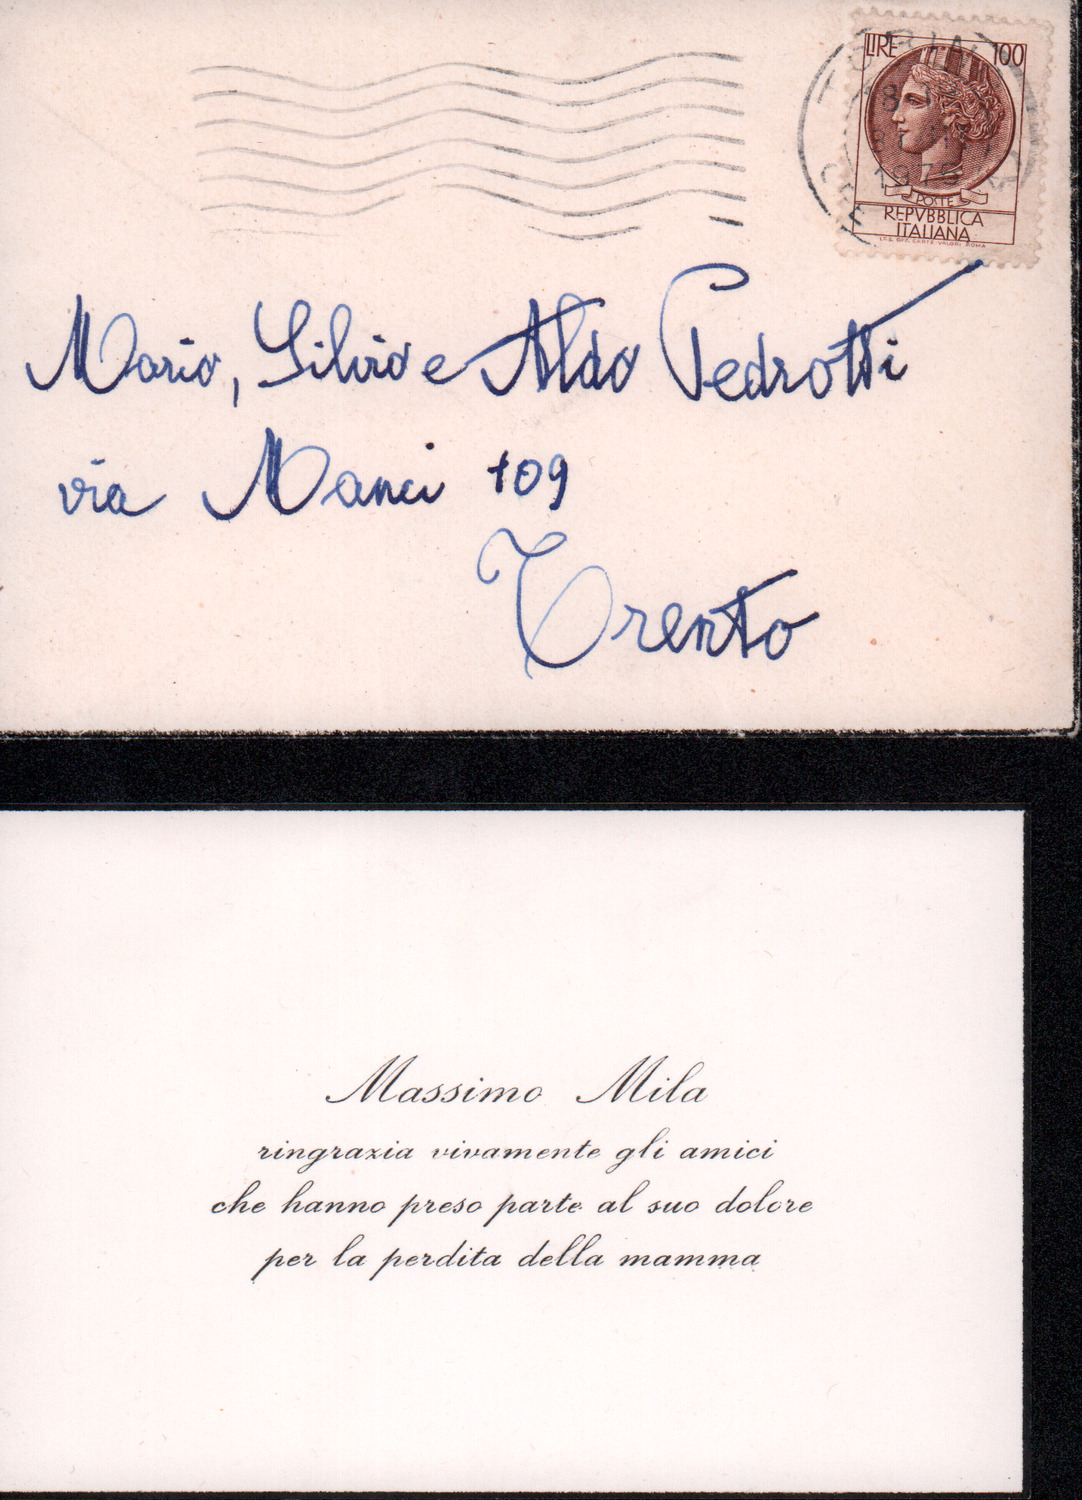 LIRE 100
TORINO
1975
POSTE
REPVBBLICA
ITALIANA
I.P.S. OFF. CARTE VALORI ROMA
Mario, Silvio e Aldo Pedrotti
via Manci 109
Trento
Massimo Mila
ringrazia vivamente gli amici
che hanno preso parte al suo dolore
per la perdita della mamma